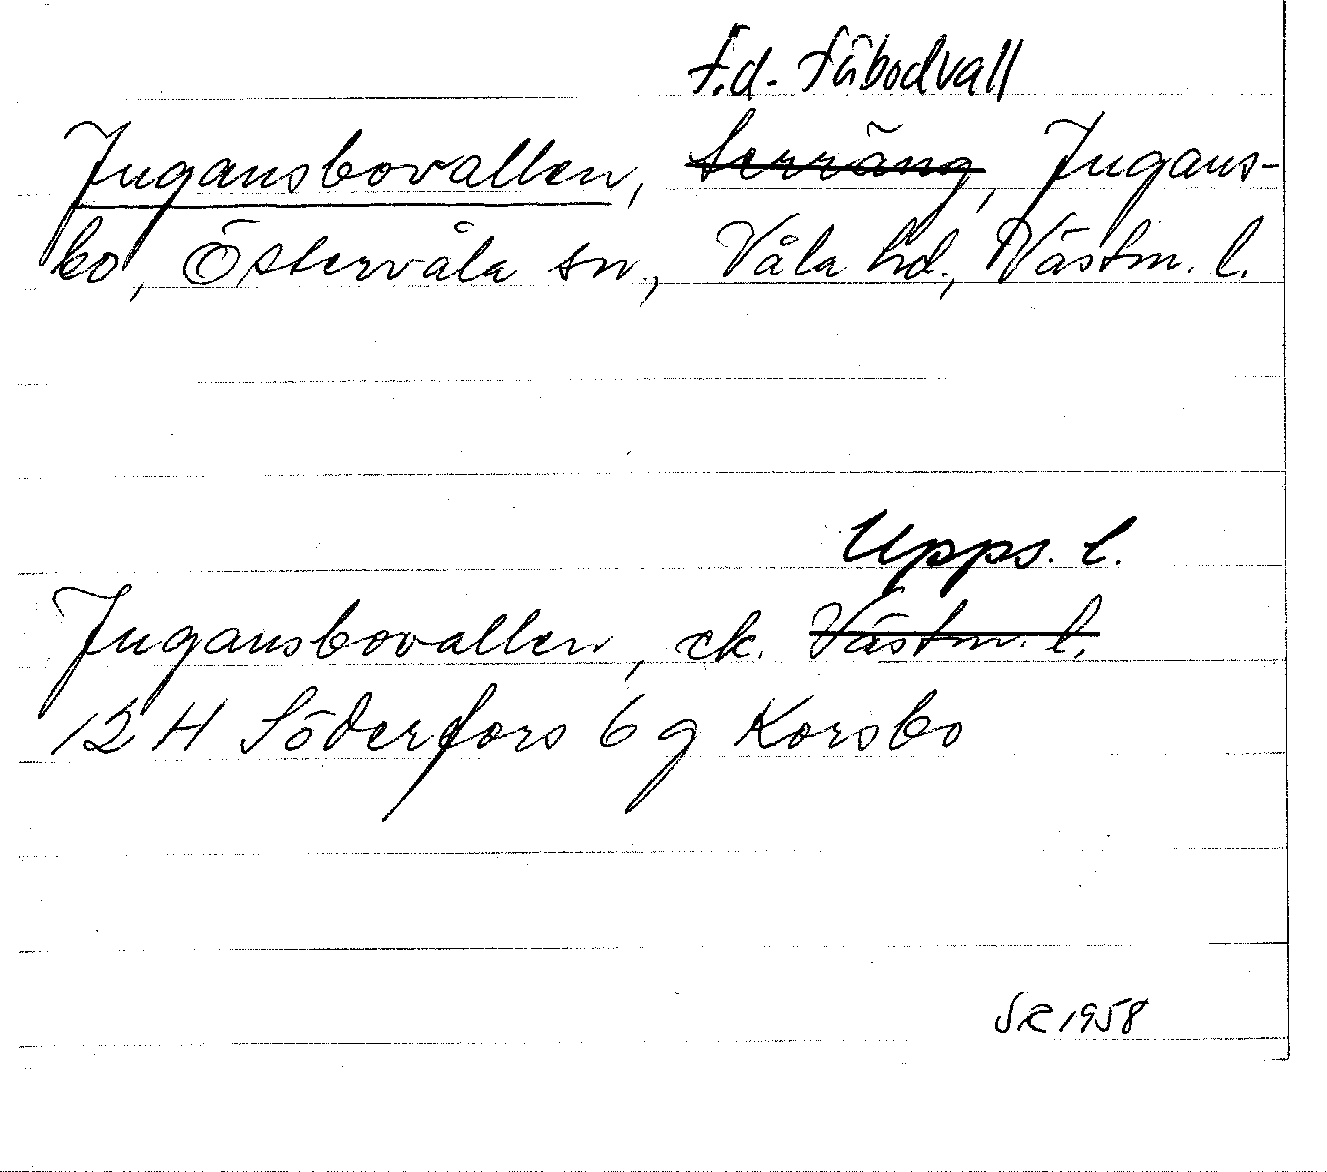 f.d. fäbodvall
Jugansbovallen, terräng, Jugans-
bo, Östervåla sn., Våla hd., Västm. l.
Upps. l.
Jugansbovallen, ek. Västm. l.
12 H Söderfors 6 g Korsbo
SR 1958